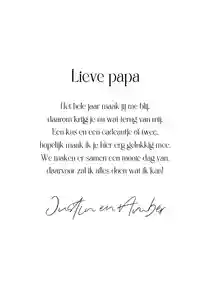 Lieve papa
Het hele jaar maak jij me blij,
daarom krijg je nu wat terug van mij.
Een kus en een cadeautje of twee,
hopelijk maak ik je hier erg gelukkig mee.
We maken er samen een mooie dag van,
daarvoor zal ik alles doen wat ik kan!
Justin en Amber